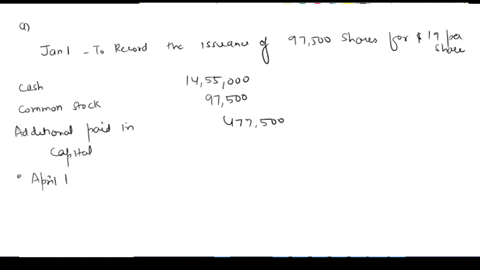 a)
Jan 1 - To Record the issuance of 97,500 shares for $ 19 per share
Cash 14,55,000
Common stock 97,500
Additional paid in 477,500
Capital
• April 1